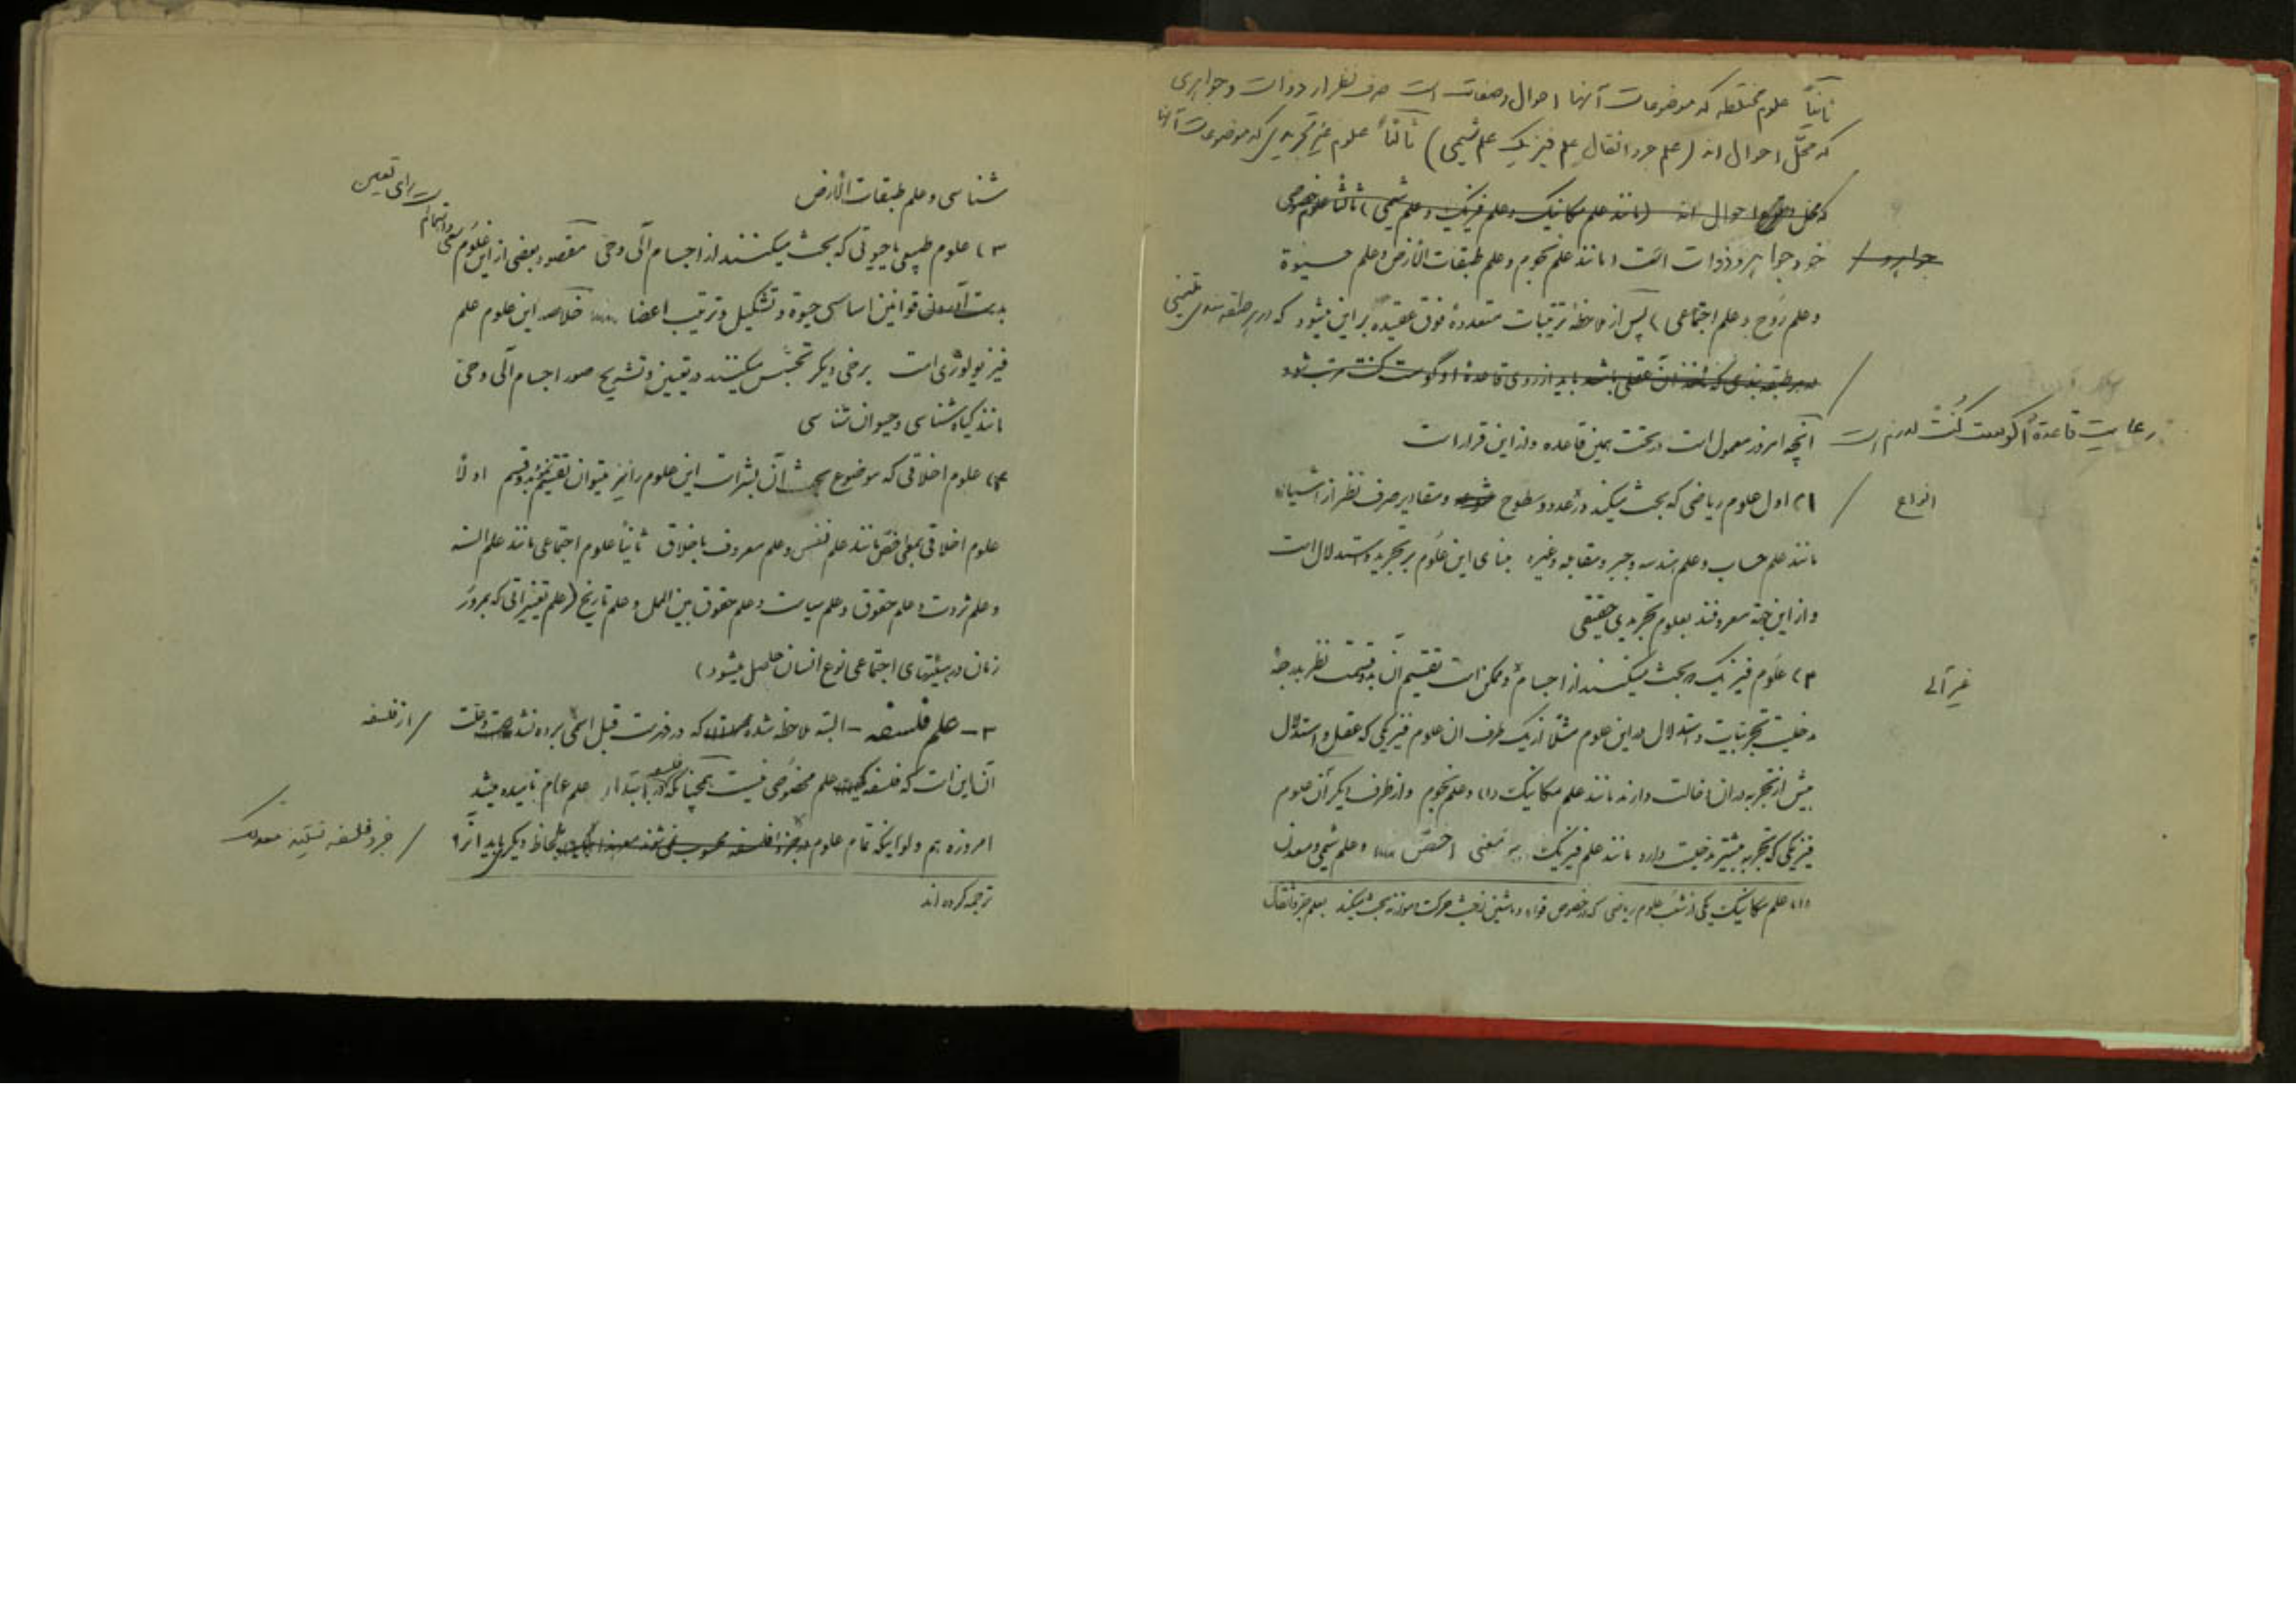 ثانیاً علوم مختلطه که موضوعات آنها احوال و صفات است صرف نظر از ذوات و جواهری
که محلّ احوال اند (علم جر اثقال علم فیزیک علم شیمی) ثالثاً علوم غیر تجریدی که موضوعات آنها
که محل احوال اند (مانند علم مکانیک و علم فیزیک و علم شیمی) ثالثاً علوم خصوصی
جواهر و
خود جواهر و ذوات است (مانند علم نجوم و علم طبقات الارض و علم حیوة
و علم روح و علم اجتماعی) پس از ملاحظهٔ ترتیبات متعددهٔ فوق عقیده بر این میشود که در هر طبقه بندی علمی
در هر طبقه بندی که مأخذ آن عقلی باشد باید از روی قاعدهٔ اوگوست کنت مرتب شود
رعایت قاعدهٔ اگوست کُنت لازم است
آنچه امروز معمول است در تحت همین قاعده و از این قرار است
انواع
۱) اول علوم ریاضی که بحث میکند در عدد و سطوح و مقادیر صرف نظر از اشیاء
مانند علم حساب و علم هندسه و جبر و مقابله و غیره بنای این علوم بر تجرید و استدلال است
و از این جهة معروفند بعلوم تجریدی حقیقی
غیر آلی
۲) علوم فیزیک بحث میکنند از اجسام و ممکن است تقسیم آن بدو قسمت نظر بدرجهٔ
مدخلیت تجربیات و استدلال در این علوم مثلاً از یک طرف آن علوم فیزیکی که عقل و استدلال
بیش از تجربه در آن دخالت دارند مانند علم مکانیک (۱) و علم نجوم و از طرف دیگر آن علوم
فیزیکی که تجربه بیشتر مدخلیت دارد مانند علم فیزیک به معنی اخص و علم شیمی و معدن
(۱) علم مکانیک یکی از شعب علوم ریاضی که در خصوص قواء و ماشین از حیث حرکت و موازنه بحث میکند بعلم جر اثقال
شناسی و علم طبقات الارض
۳) علوم طبیعی یا حیوتی که بحث میکنند از اجسام آلی و حی مقصود بعضی از این علوم سعی و اهتمام است برای تعیین
بدست آوردن قوانین اساسی حیوة و تشکیل و ترتیب اعضا خلاصه این علوم علم
فیزیولوژی است برخی دیگر تجسّس میکنند در تعیین و تشریح صور اجسام آلی و حی
مانند گیاه شناسی و حیوان شناسی
۴) علوم اخلاقی که موضوع بحث آن بشر است این علوم را نیز میتوان تقسیم نمود بدو قسم اولاً
علوم اخلاقی بمعنی اخص مانند علم نفس و علم معروف باخلاق ثانیاً علوم اجتماعی مانند علم السنه
و علم ثروت و علم حقوق و علم سیاست و علم حقوق بین الملل و علم تاریخ (علم تغییراتی که بمرور
زمان در هیئتهای اجتماعی نوع انسان حاصل میشود)
۳ - علم فلسفه - البته ملاحظه شده که در فهرست قبل اسمی برده نشد علت
از فلسفه
آن این است که فلسفه علم مخصوصی نیست همچنانکه در ابتداء فلسفه علم عام نامیده میشد
امروزه هم و لو اینکه تمام علوم جزء فلسفه محسوب نمی شوند معهذا بلحاظ دیگر باید آنرا
جزء فلسفه نیستند معذلک
ترجمه کرده اند